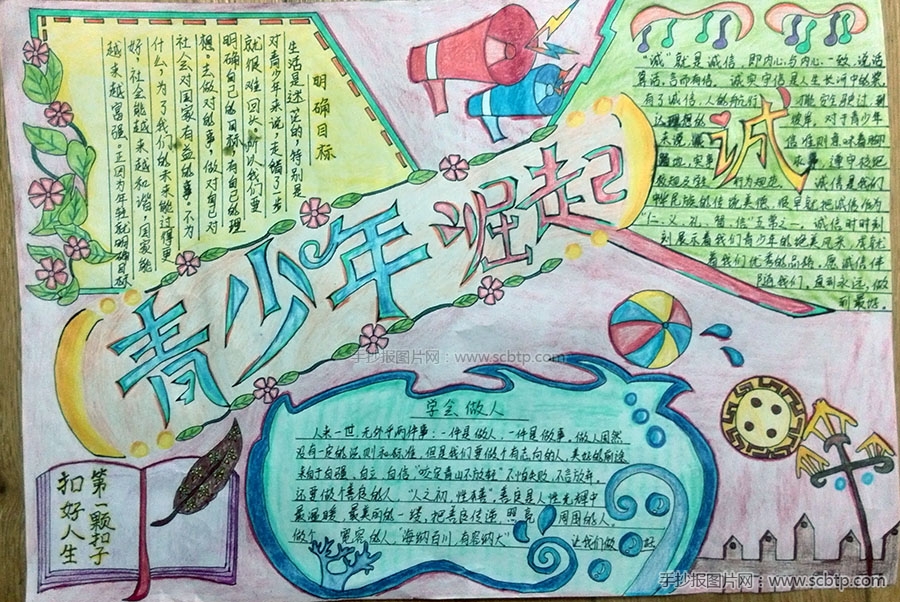 青少年崛起
明确目标
生活是迷茫的，特别是
对青少年来说，走错了一步
就很难回头。所以我们要
明确自己的目标，有自己的理
想。去做对的事，做对自己对
社会对国家有益的事。不为
什么，为了我们的未来能过得更
好，社会能越来越和谐，国家能
越来越富强。正因为年轻就明确目标
诚
“诚”就是诚信，即内心与内心一致，说话
算话，言而有信。诚实守信是人生长河中的桨
有了诚信，人的航行 才能安全驶过，到
达理想的 彼岸。对于青少年
来说，诚 信准则意味着脚
踏实地，实事 求事，遵守校纪
校规及 行为规范。诚信是我们
中华民族的传统美德，很早就把诚信作为
“仁、义、礼、智、信”五常之一。诚信时时刻
刻展示着我们青少年的绝美风采，成就
着我们优秀的品格。愿诚信伴
随我们，直到永远，做
到最好。
学会做人
人来一世，无外乎两件事：一件是做人，一件是做事。做人固然
没有一定的法则和标准，但是我们要做个有志向的人，美好的前途
来自于自强、自立、自信“咬定青山不放松”不怕失败，不言放弃，
还要做个善良的人，“人之初，性本善”，善良是人性光辉中
最温暖，最美丽的一缕，把善良传递，照亮 周围的人。
做个 宽容的人，“海纳百川，有容纳大” 让我们做
第一颗扣子
扣好人生
手抄报图片网：www.scbtp.com
手抄报图片网：www.scbtp.com